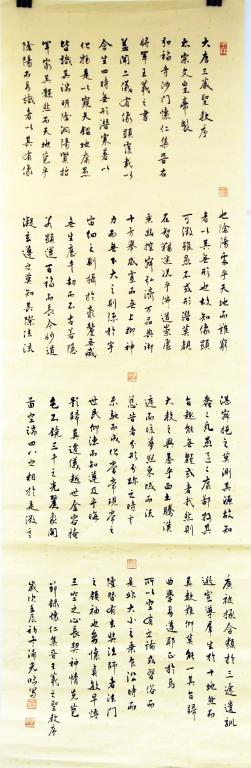 大唐三藏聖教序
太宗文皇帝製
弘福寺沙門懷仁集晉右
將軍王羲之書
蓋聞二儀有像顯覆載以
含生四時無形潛寒暑以
化物是以窺天鑑地庸愚
皆識其端明陰洞陽賢哲
罕窮其數然而天地苞乎
陰陽而易識者以其有像
也陰陽處乎天地而難窮
者以其無形也故知像顯
可徵雖愚不惑形潛莫覩
在智猶迷況乎佛道崇虛
乘幽控寂弘濟萬品典御
十方舉威靈而無上抑神
力而無下大之則彌於宇
宙細之則攝於毫釐無滅
無生歷千劫而不古若隱
若顯運百福而長今妙道
凝玄遵之莫知其際法流
湛寂挹之莫測其源故知
蠢蠢凡愚區區庸鄙投其
旨趣能無疑或者哉然則
大教之興基乎西土騰漢
庭而皎夢照東域而流
慈昔者分形分跡之時言
未馳而成化當常現常之
世民仰德而知遵及乎晦
影歸真遷儀越世金容掩
色不鏡三千之光麗象開
圖空端四八之相於是微言
廣被拯含類於三途遺訓
遐宣導群生於十地然而
真教難仰莫能一其旨歸
曲學易遵邪正於焉
所以空有之論或習俗而
是非大小之乘乍沿時而
隆替有玄奘法師者法門
之領袖也幼懷貞敏早悟
三空之心長契神情先苞
節錄懷仁集晉王羲之聖教序
歲次